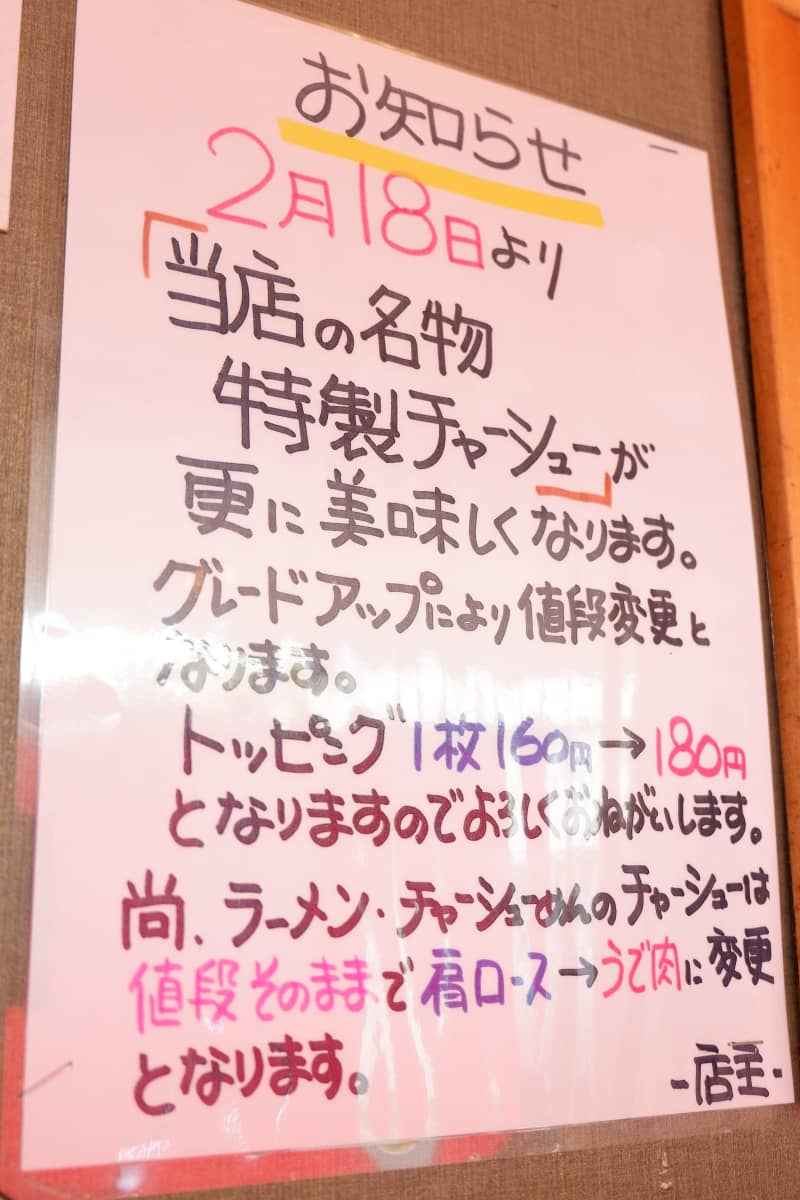 お知らせ
2月18日より
「当店の名物
特製チャーシュー」が
更に美味しくなります。
グレードアップにより値段変更と
なります。
トッピング1枚160円→180円
となりますのでよろしくおねがいします。
尚、ラーメン・チャーシューめんのチャーシューは
値段そのままで肩ロース→うで肉に変更
となります。
-店主-